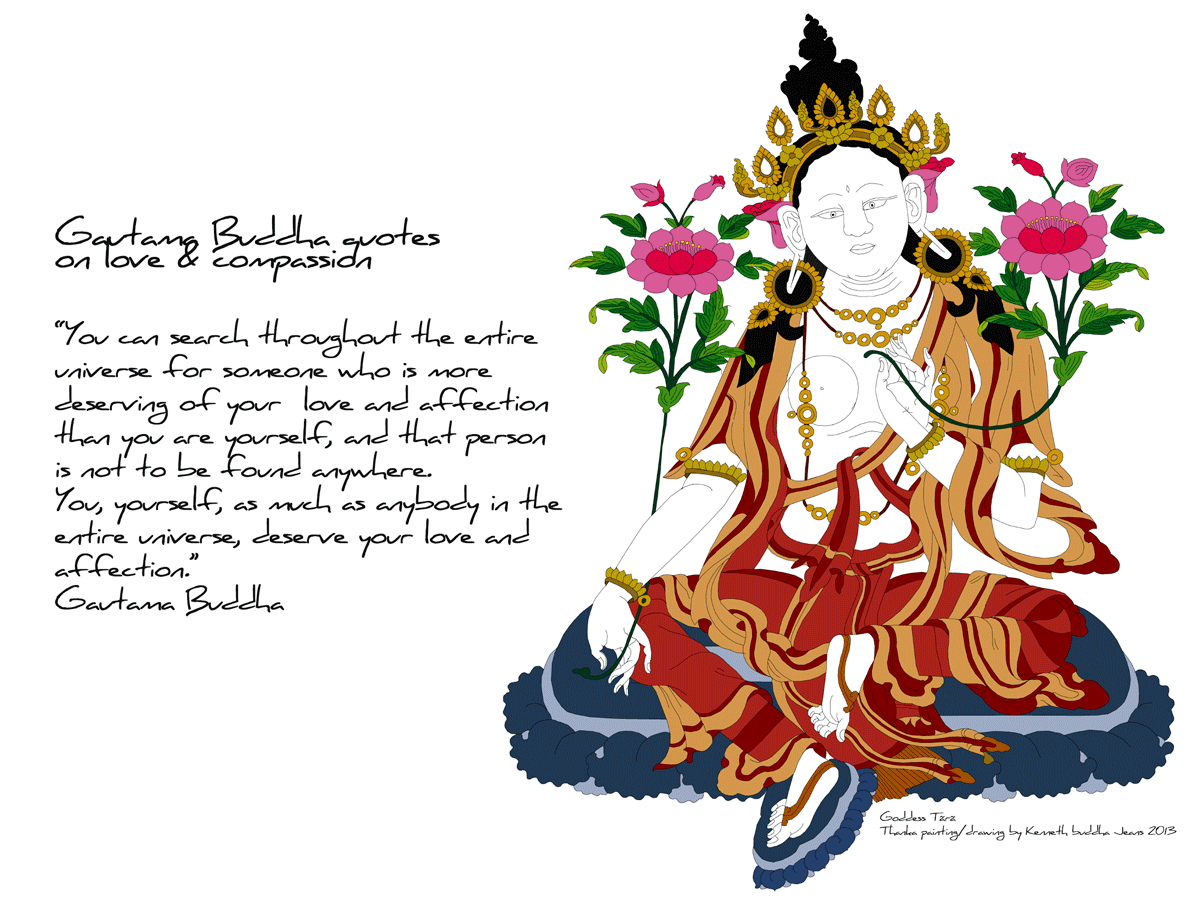 Gautama Buddha quotes
on love & compassion
“You can search throughout the entire
universe for someone who is more
deserving of your love and affection
than you are yourself, and that person
is not to be found anywhere.
You, yourself, as much as anybody in the
entire universe, deserve your love and
affection.”
Gautama Buddha
Goddess Tärä
Thanka painting/drawing by Kenneth buddha Jeans 2013